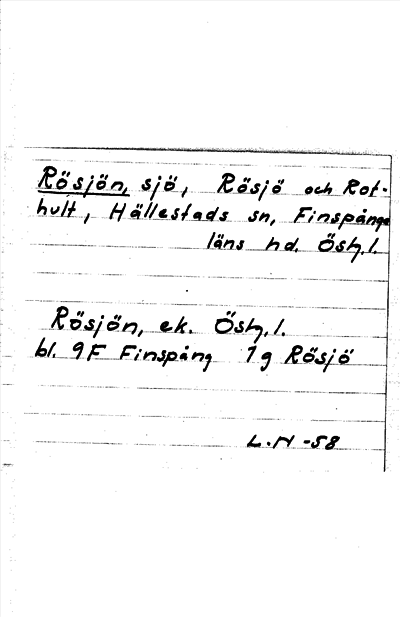 Rösjön, sjö, Rösjö och Rot-
hult, Hällestads sn, Finspånga
läns hd. Östg.l.
Rösjön, ek. Östg.l.
bl. 9F Finspång 7g Rösjö
L.N -58